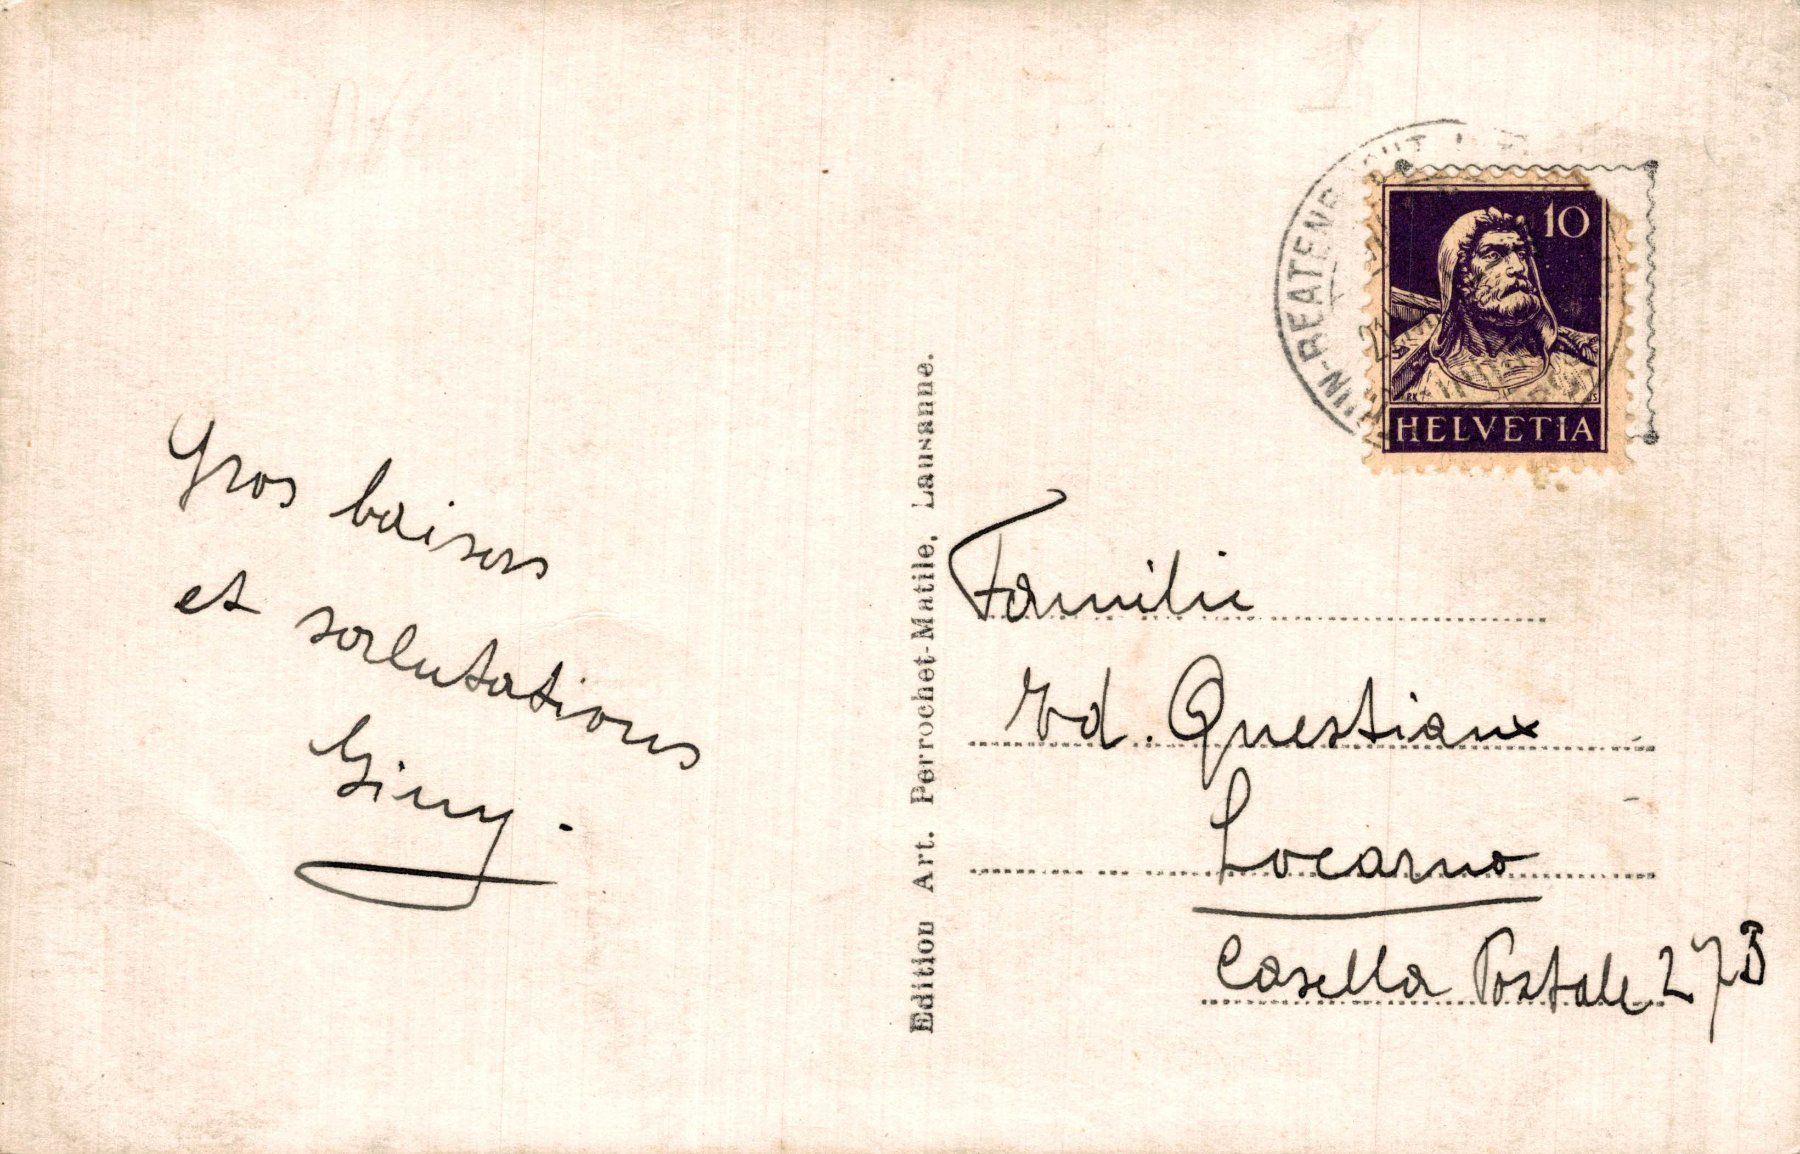 Gros baisers
et salutations
Giny.
Edition Art. Perrochet-Matile, Lausanne.
10
HELVETIA
Familie
Ed. Questiaux
Locarno
Casella Postale 273